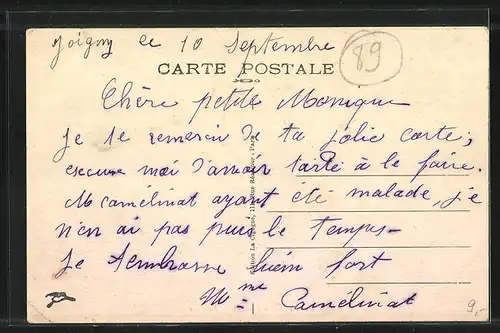 Joigny le 10 Septembre
89
CARTE POSTALE
Chère petite Monique
Je te remercie de ta jolie carte,
excuse moi d'avoir tardé à le faire.
M Camélinat ayant été malade, je
n'en ai pas pris le temps-
Je t'embrasse bien fort
Mme Camélinat
9,-